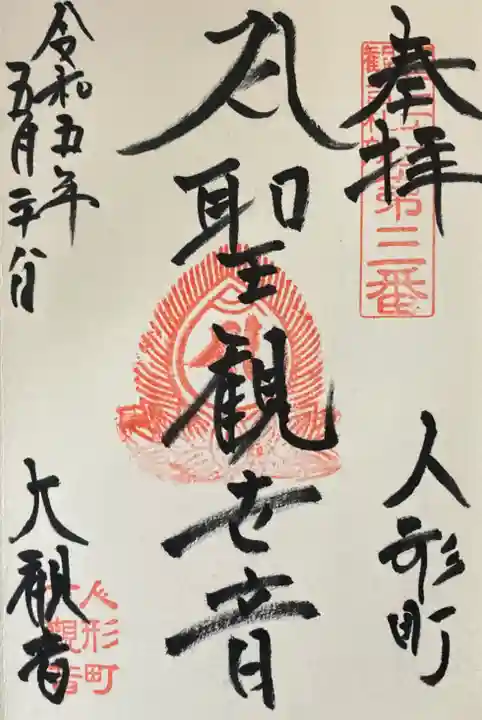 奉拝
第三番
人形町
聖観世音
令和五年
五月二十八日
大観音
人形町
大観音